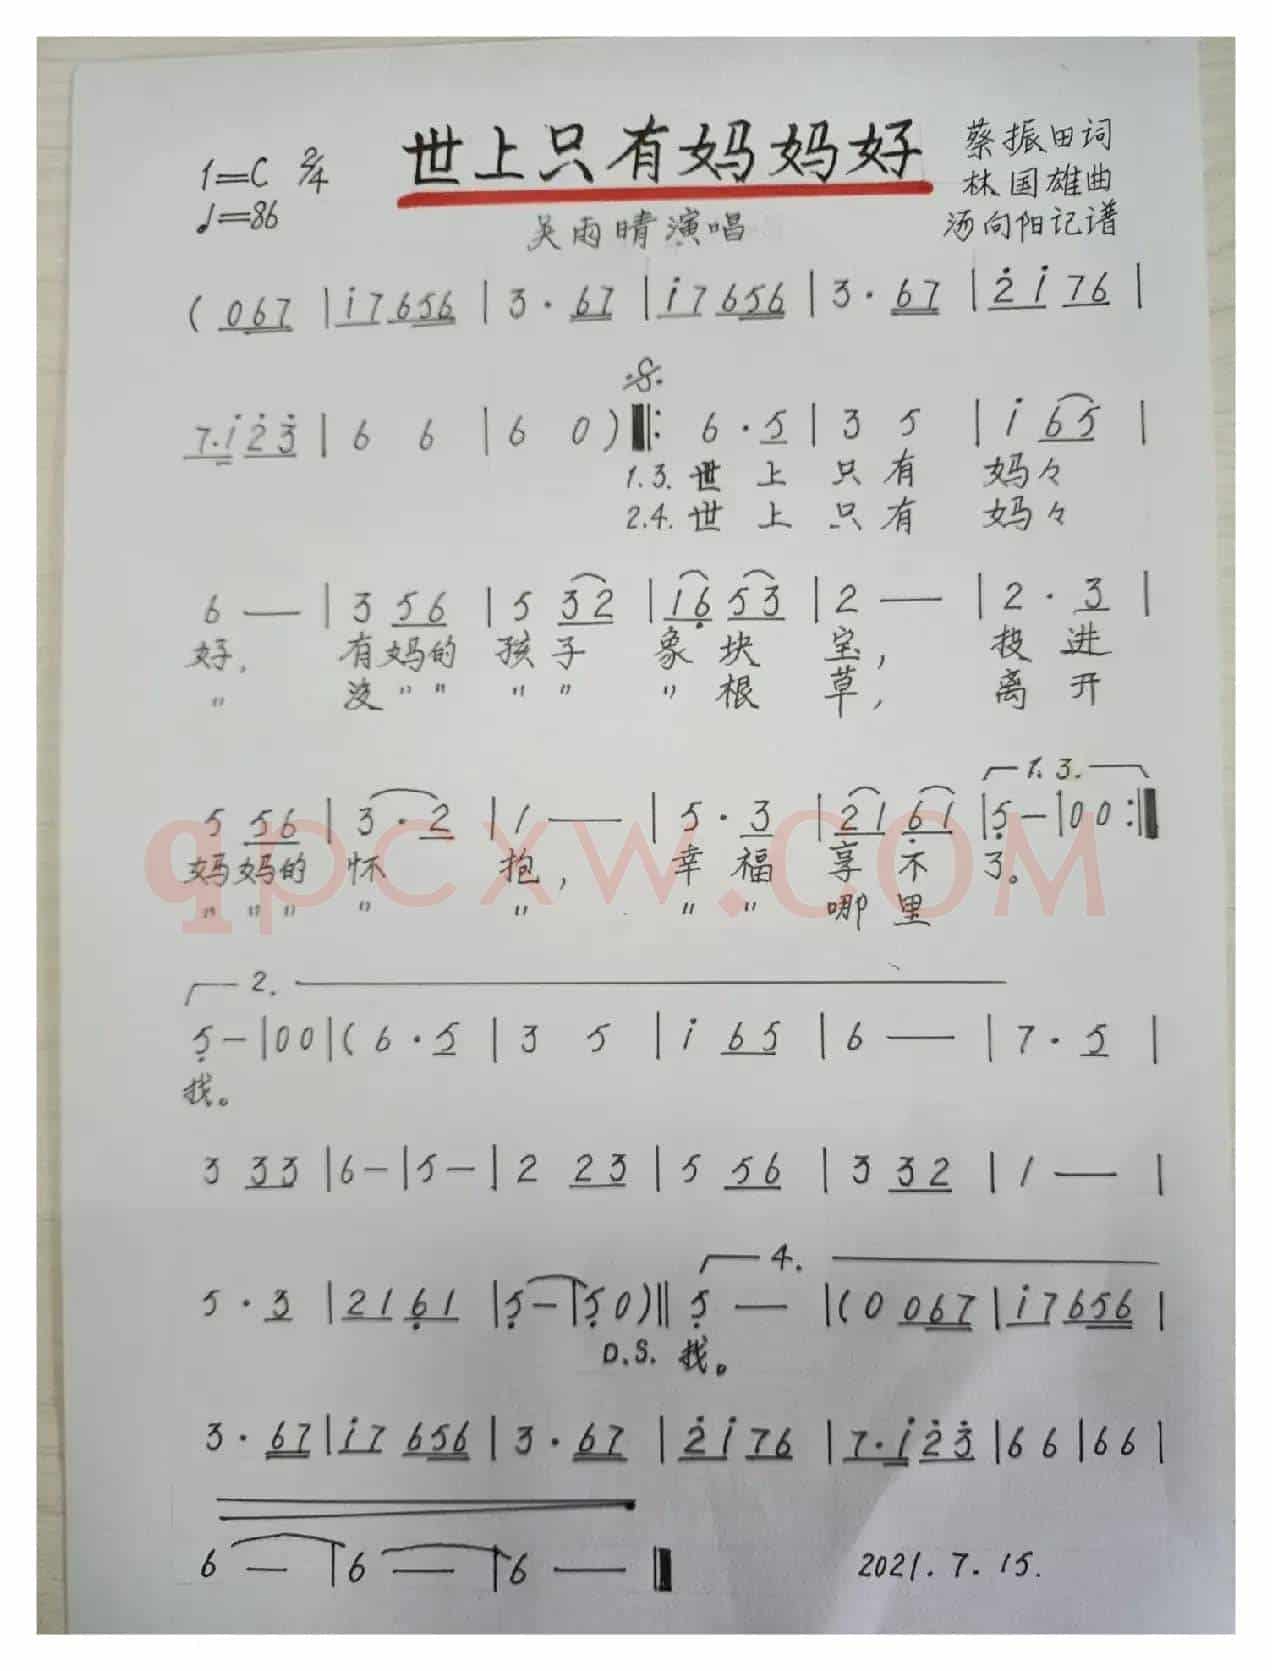 世上只有妈妈好
1=C 2/4
♩=86
蔡振田词
林国雄曲
汤向阳记谱
吴雨晴演唱
( 067 | i7 656 | 3 · 67 | i7 656 | 3 · 67 | 2̇ i 76 |
7·i 2̇3̇ | 6 6 | 6 0 ) 𝄋 ‖: 6 · 5 | 3 5 | i 65 |
1.3. 世上只有妈々
2.4. 世上只有妈々
6 — | 3 56 | 5 32 | 16̣ 53 | 2 — | 2 · 3 |
好, 有妈的孩子象块宝, 投进
〃 没〃〃〃〃〃根草, 离开
1. 3.
5 56 | 3 · 2 | 1 — | 5 · 3 | 21 6̣1 | 5̣ — | 0 0 :‖
妈妈的怀抱, 幸福享不了。
〃〃〃〃〃〃〃哪里
2.
5̣ — | 0 0 | ( 6 · 5 | 3 5 | i 65 | 6 — | 7 · 5 |
找。
3 33 | 6 — | 5 — | 2 23 | 5 56 | 3 32 | 1 — |
4.
5 · 3 | 21 6̣1 | 5̣ — | 5̣ 0 ) ‖ 5̣ — | ( 0 067 | i7 656 |
D.S. 找。
3 · 67 | i7 656 | 3 · 67 | 2̇ i 76 | 7·i 2̇3̇ | 6 6 | 6 6 |
6 — | 6 — | 6 — ‖
2021.7.15.
qpcxw.COM